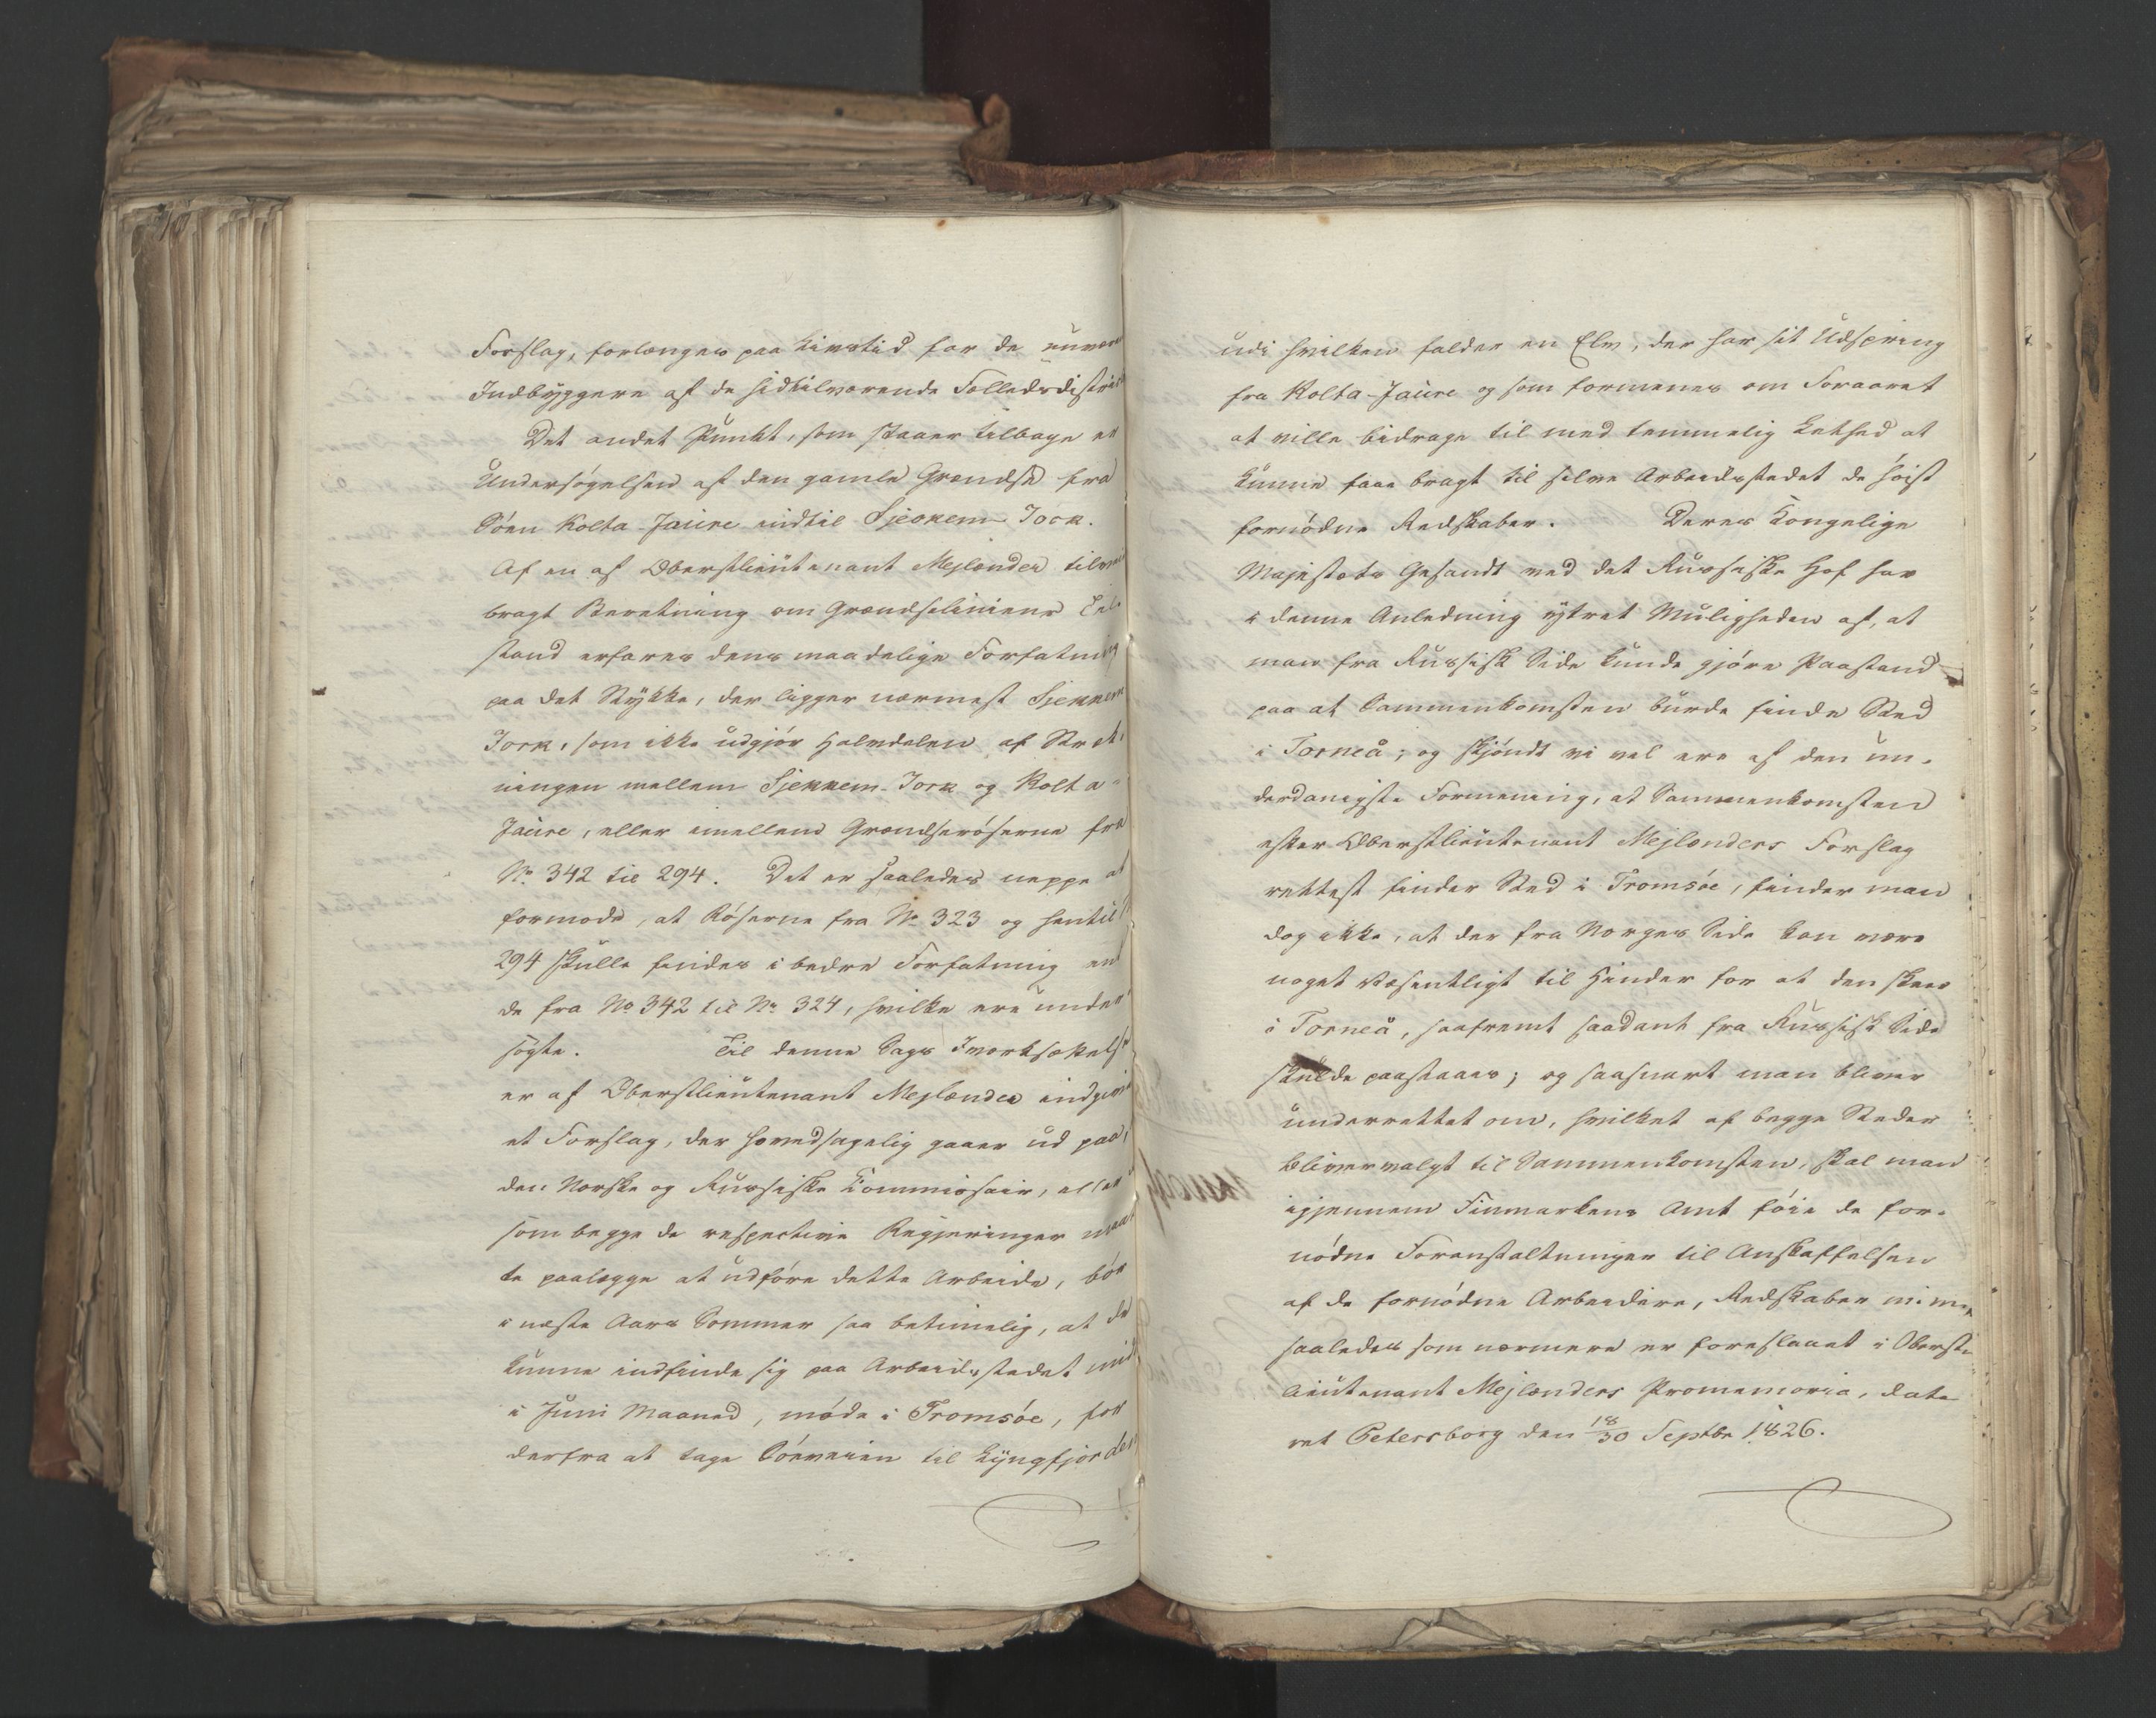 Forslag, forlænges paa Livstid for de nuværen
Indbyggere af de hidtilværende Fælledsdistrik
Det andet Punkt, som staaer tilbage er
Undersøgelsen af den gamle Grændse fra
Søen Kolta-Jaure indtil Sjeokem Jock.
Af en af Oberstlieutenant Mejlænder tilveie
bragt Beretning om Grændseliniens Til-
stand erfares dens maadelige Forfatning
paa det Stykke, der ligger nærmest Sjekkem
Jock, som ikke udgjør Halvdelen af Stræk-
ningen mellem Sjekkem-Jock og Kolta-
Jaure, eller imellem Grændserøserne fra
No. 342 til 294. Det er saaledes neppe at
formode, at Røserne fra No 323 og hentil
294 skulle findes i bedre Forfatning end
de fra No 342 til No 324, hvilke ere under
søgte. Til denne Sags Iværksættelse
er af Oberstlieutenant Mejlænder indgivet
et Forslag, der hovedsagelig gaaer ud paa,
den Norske og Russiske Kommissair, eller
som begge de respective Regjeringer maat
te paalægge at udføre dette Arbeide, bør
i næste Aars Sommer saa betimelig, at de
kunne indfinde sig paa Arbeidsstedet midt
i Juni Maaned, møde i Tromsøe, for
derfra at tage Søeveien til Lyngfjorden
udi hvilken falder en Elv, der har sit Udspring
fra Kolta-Jaure og som formenes om Foraaret
at ville bidrage til med temmelig Lethed at
kunne faae bragt til selve Arbeidsstedet de høist
fornødne Redskaber. Deres Kongelige
Majestæts Gesandt ved det Russiske Hof har
i denne Anledning ytret Muligheden af, at
man fra Russisk Side kunde gjøre Paastand
paa at Sammenkomsten burde finde Sted
i Torneå; og skjøndt vi vel ere af den un-
derdanigste Formening, at Sammenkomsten
efter Oberstlieutenant Mejlænders Forslag
rettest finder Sted i Tromsøe, finder man
dog ikke, at der fra Norges Side kan være
noget Væsentligt til Hinder for at den skeer
i Torneå, saafremt saadant fra Russisk Side
skulde paastaaes; og saasnart man bliver
underrettet om, hvilket af begge Steder
bliver valgt til Sammenkomsten, skal man
igjennem Finmarkens Amt føie de for-
nødne Foranstaltninger til Anskaffelsen
af de fornødne Arbeidere, Redskaber m: m:
saaledes som nærmere er foreslaaet i Oberst-
lieutenant Mejlænders Promemoria, date
ret Petersborg den 18/30 Septbr 1826.